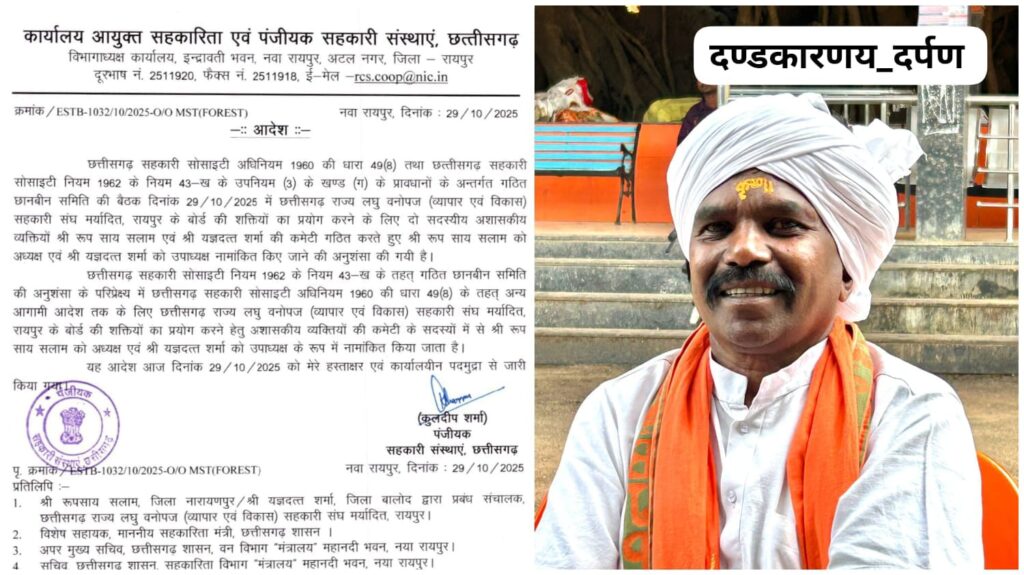 कार्यालय आयुक्त सहकारिता एवं पंजीयक सहकारी संस्थाएं, छत्तीसगढ़
विभागाध्यक्ष कार्यालय, इन्द्रावती भवन, नवा रायपुर, अटल नगर, जिला – रायपुर
दूरभाष नं. 2511920, फैक्स नं. 2511918, ई–मेल –rcs.coop@nic.in
क्रमांक/ESTB-1032/10/2025-O/O MST(FOREST) नवा रायपुर, दिनांक : 29/10/2025
–:: आदेश ::–
छत्तीसगढ़ सहकारी सोसाइटी अधिनियम 1960 की धारा 49(8) तथा छत्तीसगढ़ सहकारी
सोसाइटी नियम 1962 के नियम 43–ख के उपनियम (3) के खण्ड (ग) के प्रावधानों के अन्तर्गत गठित
छानबीन समिति की बैठक दिनांक 29/10/2025 में छत्तीसगढ़ राज्य लघु वनोपज (व्यापार एवं विकास)
सहकारी संघ मर्यादित, रायपुर के बोर्ड की शक्तियों का प्रयोग करने के लिए दो सदस्यीय अशासकीय
व्यक्तियों श्री रूप साय सलाम एवं श्री यज्ञदत्त शर्मा की कमेटी गठित करते हुए श्री रूप साय सलाम को
अध्यक्ष एवं श्री यज्ञदत्त शर्मा को उपाध्यक्ष नामांकित किए जाने की अनुशंसा की गयी है।
छत्तीसगढ़ सहकारी सोसाइटी नियम 1962 के नियम 43–ख के तहत् गठित छानबीन समिति
की अनुशंसा के परिप्रेक्ष्य में छत्तीसगढ़ सहकारी सोसाइटी अधिनियम 1960 की धारा 49(8) के तहत् अन्य
आगामी आदेश तक के लिए छत्तीसगढ़ राज्य लघु वनोपज (व्यापार एवं विकास) सहकारी संघ मर्यादित,
रायपुर के बोर्ड की शक्तियों का प्रयोग करने हेतु अशासकीय व्यक्तियों की कमेटी के सदस्यों में से श्री रूप
साय सलाम को अध्यक्ष एवं श्री यज्ञदत्त शर्मा को उपाध्यक्ष के रूप में नामांकित किया जाता है।
यह आदेश आज दिनांक 29/10/2025 को मेरे हस्ताक्षर एवं कार्यालयीन पदमुद्रा से जारी
किया गया।
पंजीयक
सहकारी संस्थाएं छत्तीसगढ़
(कुलदीप शर्मा)
पंजीयक
सहकारी संस्थाएं, छत्तीसगढ़
पृ. क्रमांक/ESTB-1032/10/2025-O/O MST(FOREST) नवा रायपुर, दिनांक : 29/10/2025
प्रतिलिपि :–
1. श्री रूपसाय सलाम, जिला नारायणपुर/श्री यज्ञदत्त शर्मा, जिला बालोद द्वारा प्रबंध संचालक,
छत्तीसगढ़ राज्य लघु वनोपज (व्यापार एवं विकास) सहकारी संघ मर्यादित, रायपुर।
2. विशेष सहायक, माननीय सहकारिता मंत्री, छत्तीसगढ़ शासन ।
3. अपर मुख्य सचिव, छत्तीसगढ़ शासन, वन विभाग "मंत्रालय" महानदी भवन, नया रायपुर।
4 सचिव छत्तीसगढ़ शासन, सहकारिता विभाग "मंत्रालय" महानदी भवन, नया रायपुर।
दण्डकारणय_दर्पण